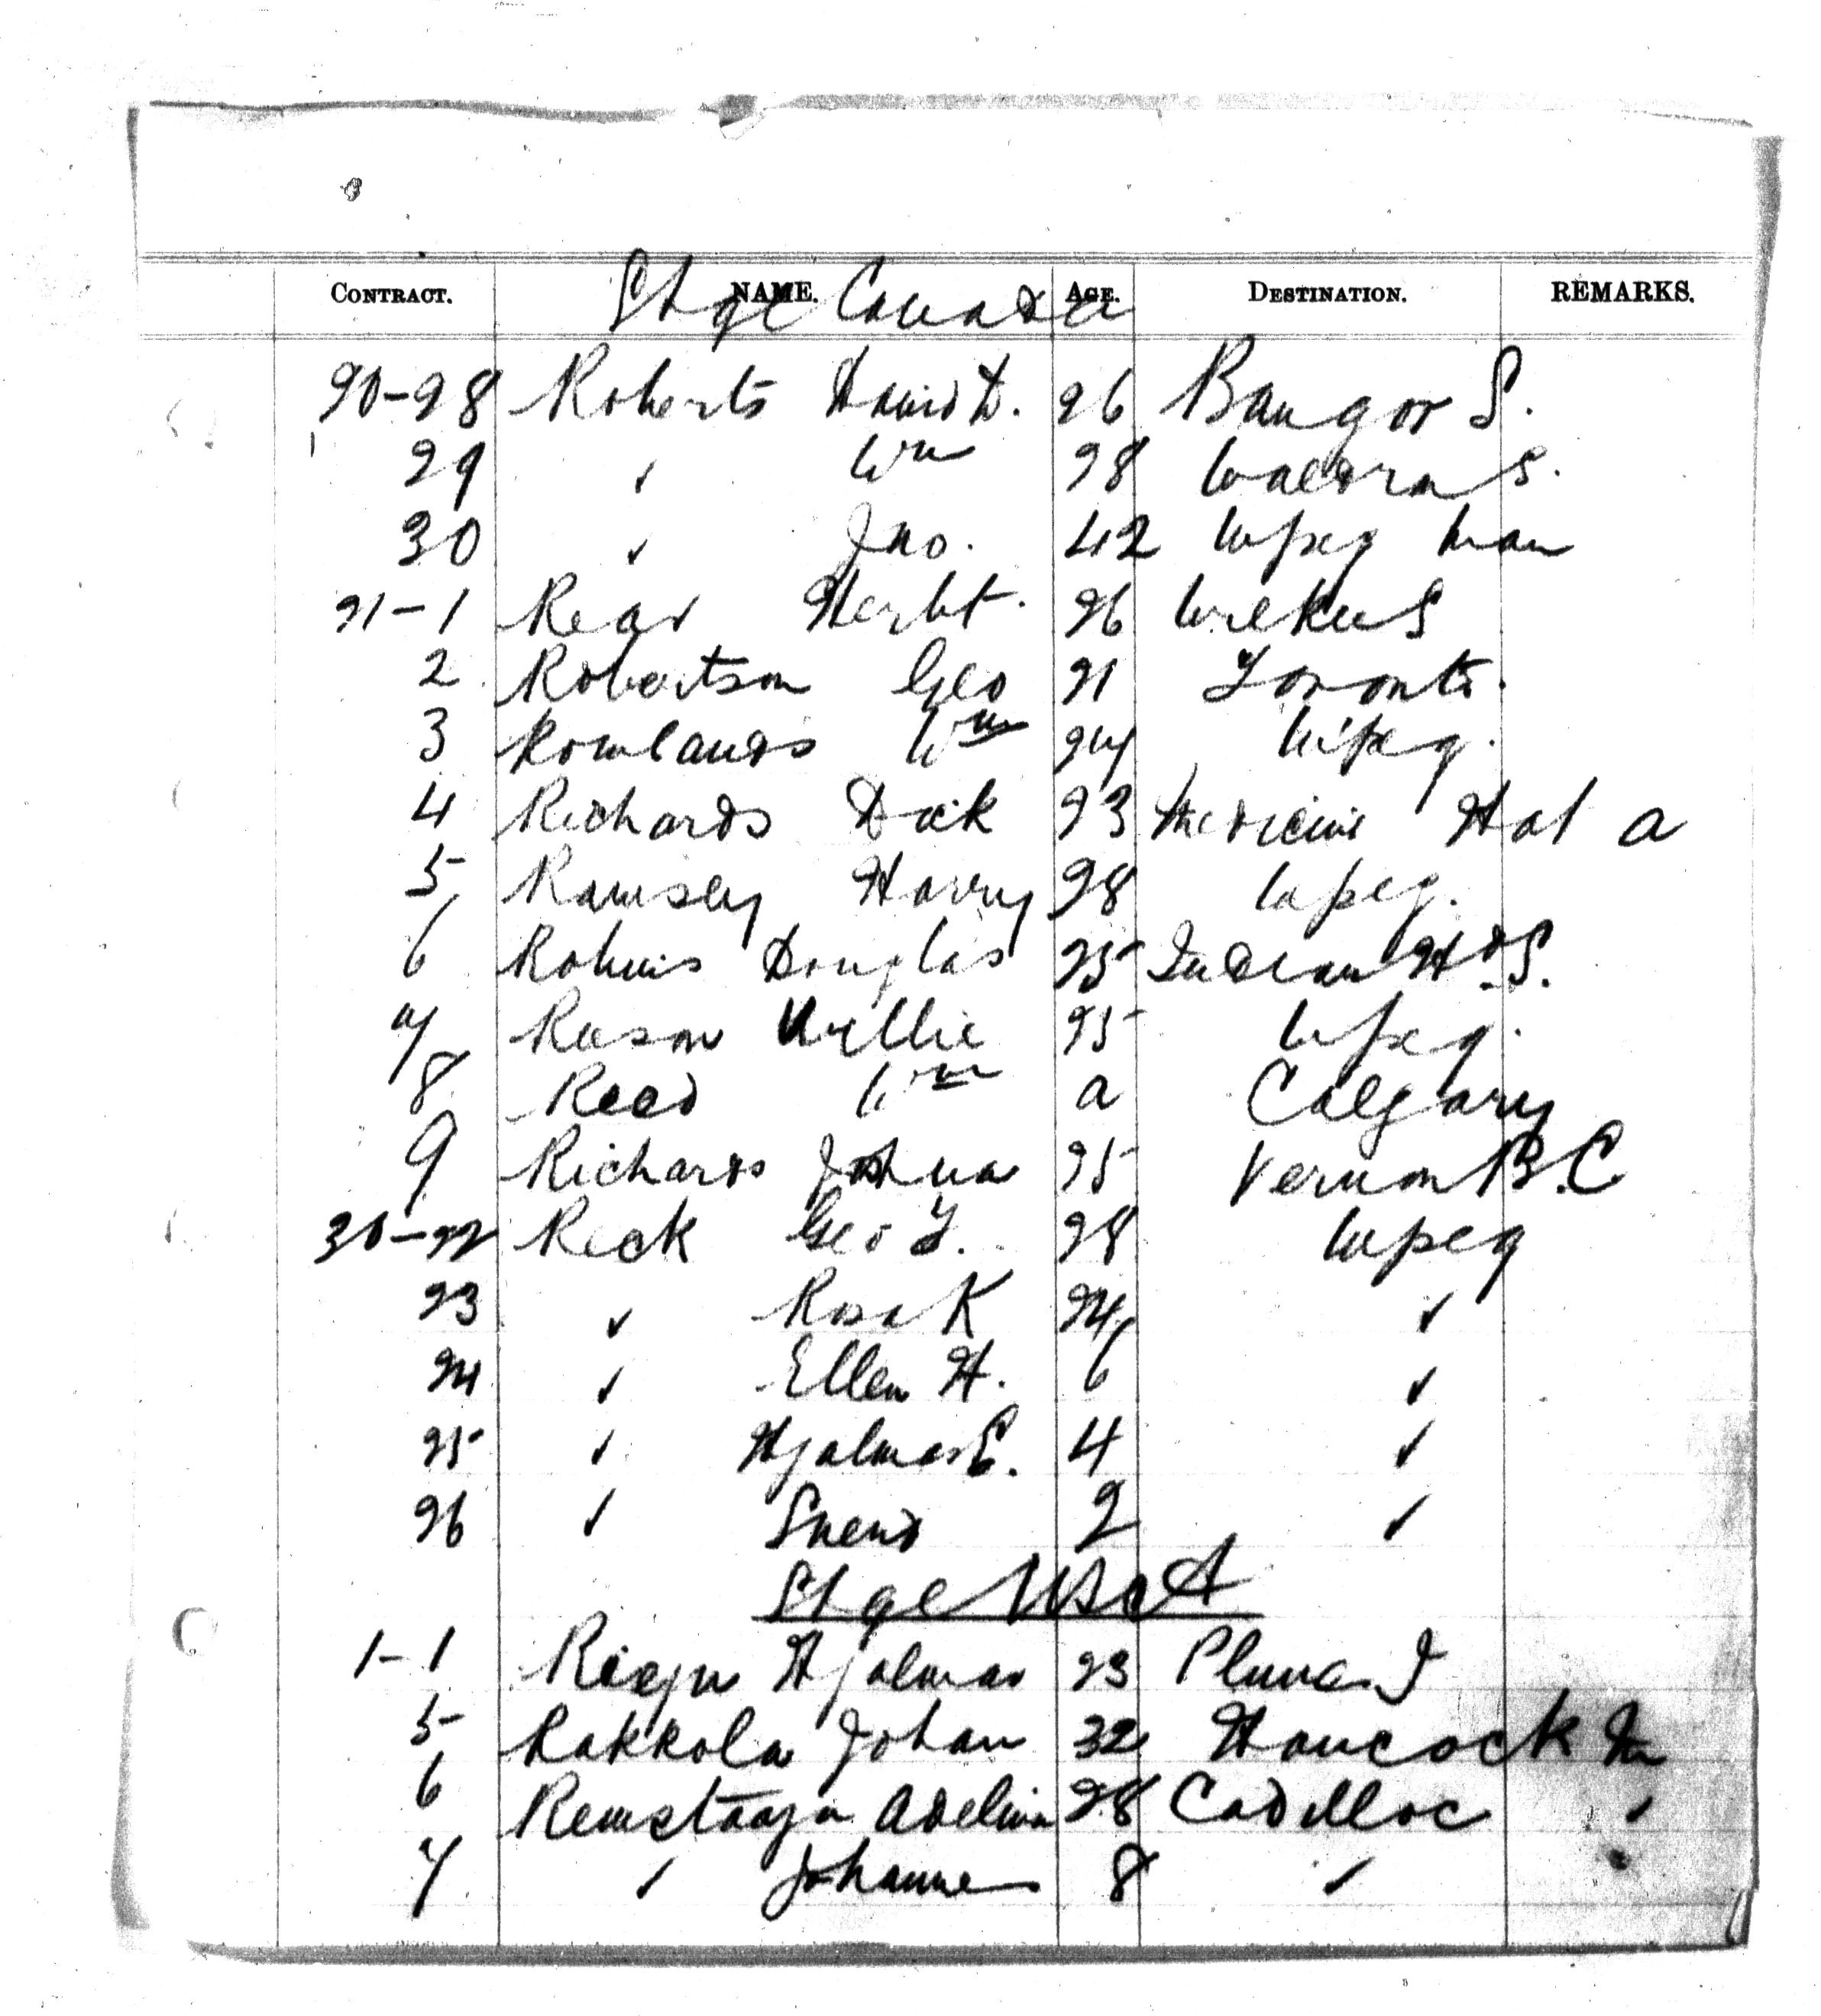 CONTRACT. NAME. AGE. DESTINATION. REMARKS.
Stge Canada
20-28 Roberts David D. 26 Bangor S.
29 " Wm 28 Waldron S.
30 " Jno. 42 Wpeg Man
21-1 Herbt. 26 S
2 Robertson Geo 21 Toronto.
3 Rowlands Wm 27 Wpeg.
4 Richards Dick 23 Medicine Hat A
5 Ramsey Harry 28 Wpeg.
6 Robins Douglas 25 Indian Hd S.
7 Willie 25 Wpeg.
8 Reed Wm a Calgary
9 Richards Joshua 25 Vernon B.C
30-22 Reck Geo T. 28 Wpeg
23 " Rosa K 24 "
24 " Ellen H. 6 "
25 " Hjalmar E. 4 "
26 " Svend 2 "
Stge USA
1-1 Hjalmar 23
5 Rakkola Johan 32 Hancock M
6 Adelina 28 Cadillac "
7 " Johannes 8 "